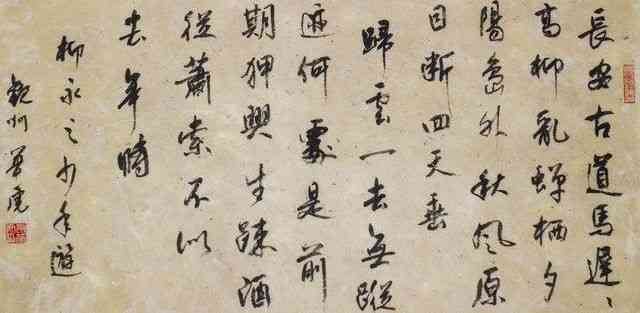 長安古道馬遲〻
高柳亂蟬栖夕
陽島外秋風原
目斷四天垂
歸雲一去無蹤
迹何處是前
期狎興生踈酒
徒蕭索不似
去年時
柳永之少年遊